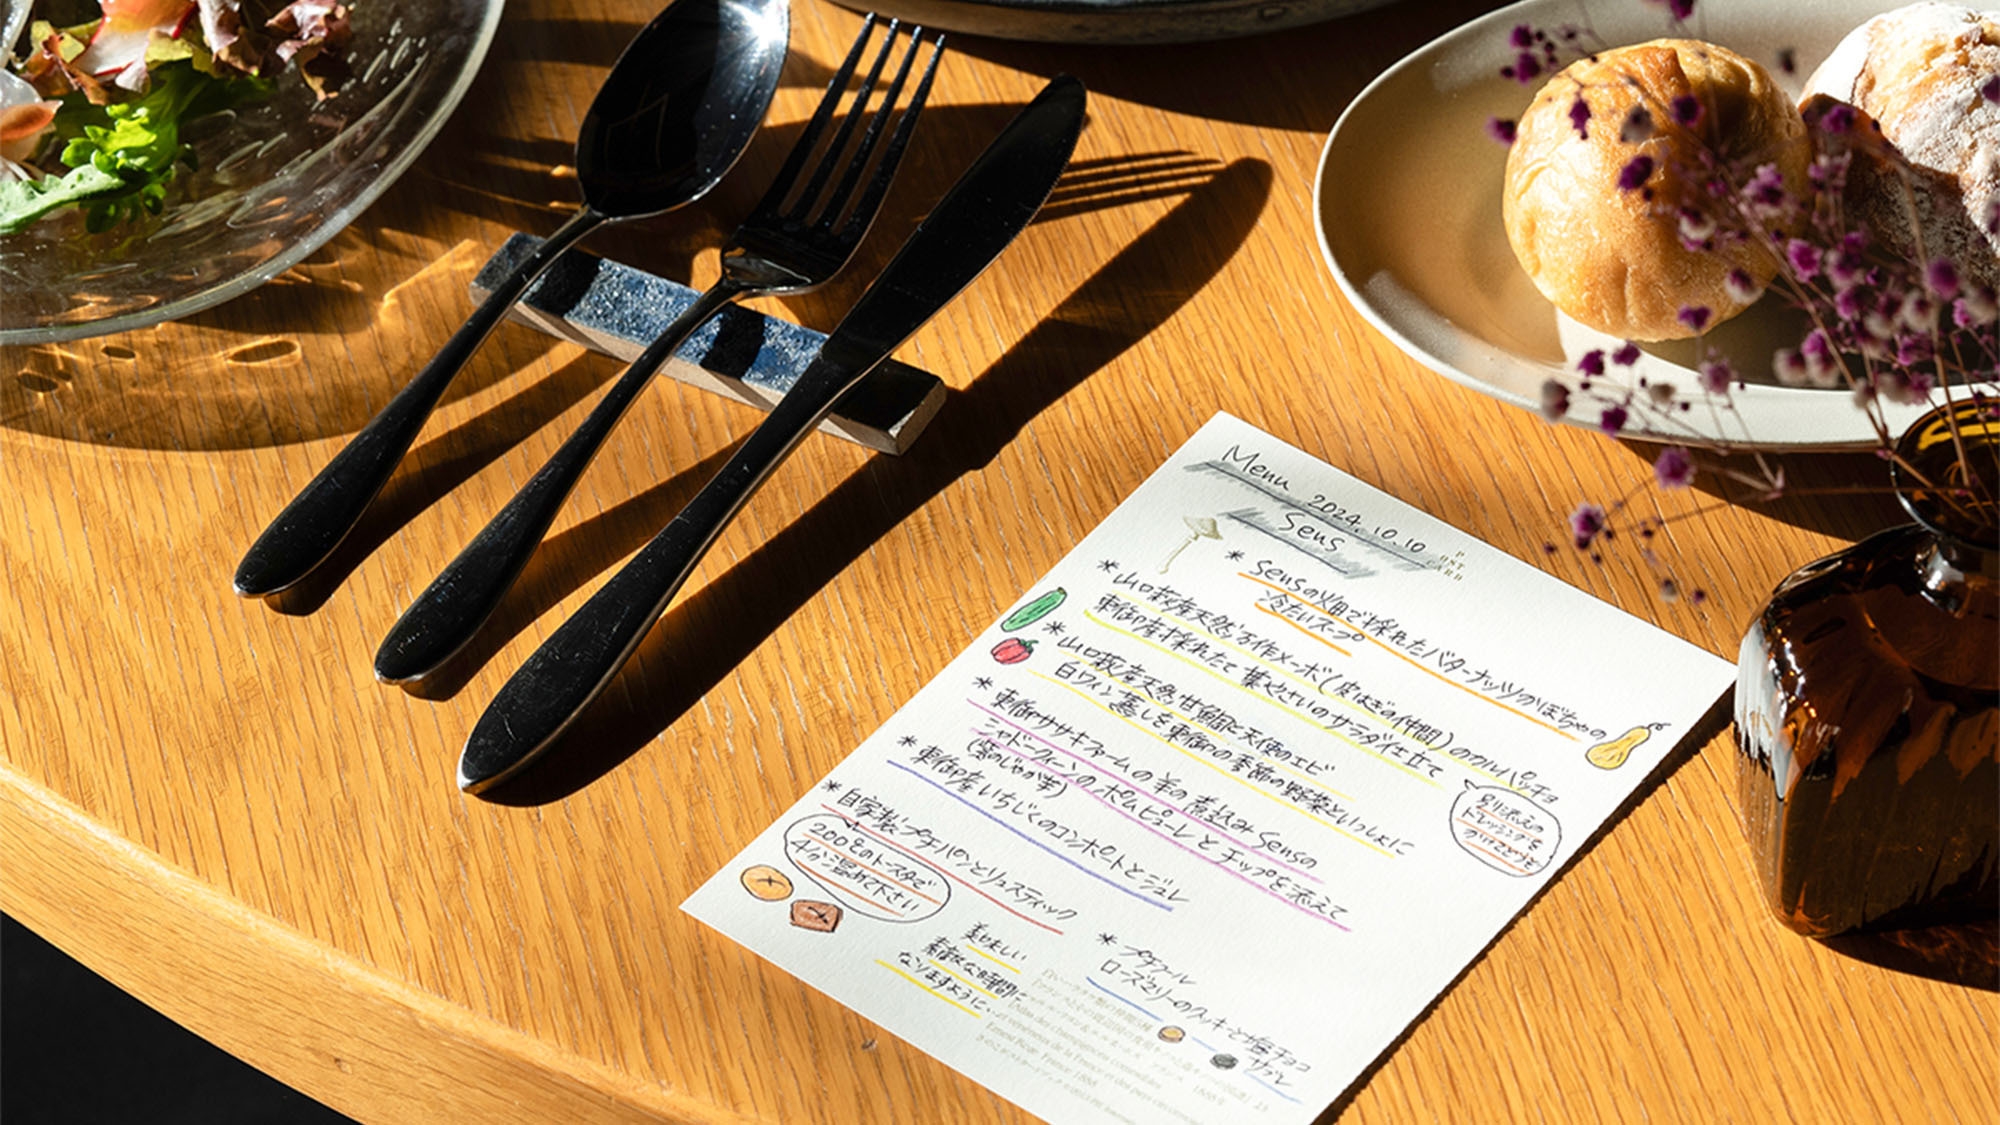 Menu 2024.10.10
Sens
POST CARD
* Sensの畑で採れたバターナッツかぼちゃの
冷たいスープ
* 山口萩産天然 メーボ(皮はぎの仲間)のカルパッチョ
東御産採れたて 焼やさいのサラダ仕立て
別添えの
ドレッシングを
かけてどうぞ
* 山口萩産天然甘鯛と天使のエビ
白ワイン蒸しを東御の季節の野菜といっしょに
* 東御ササキファームの羊の煮込み Sensの
シャドークイーンのポムピューレとチップを添えて
(紫のじゃが芋)
* 東御産いちじくのコンポートとジュレ
* 自家製プチパンとリュスティック
200℃のトースターで
4分温めて下さい
* プチフール
ローズマリーのクッキーと塩チョコ
サブレ
美味しい
素敵な時間に
なりますように..